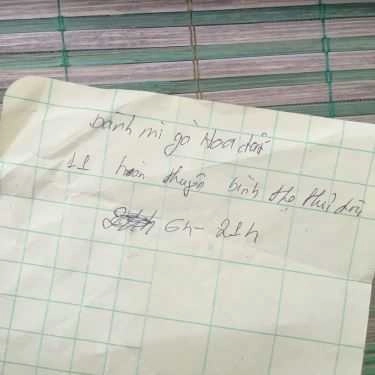 bánh mì gà Hoa đất
11 hoàn thuyên bình thọ thủ đức
6h - 21h